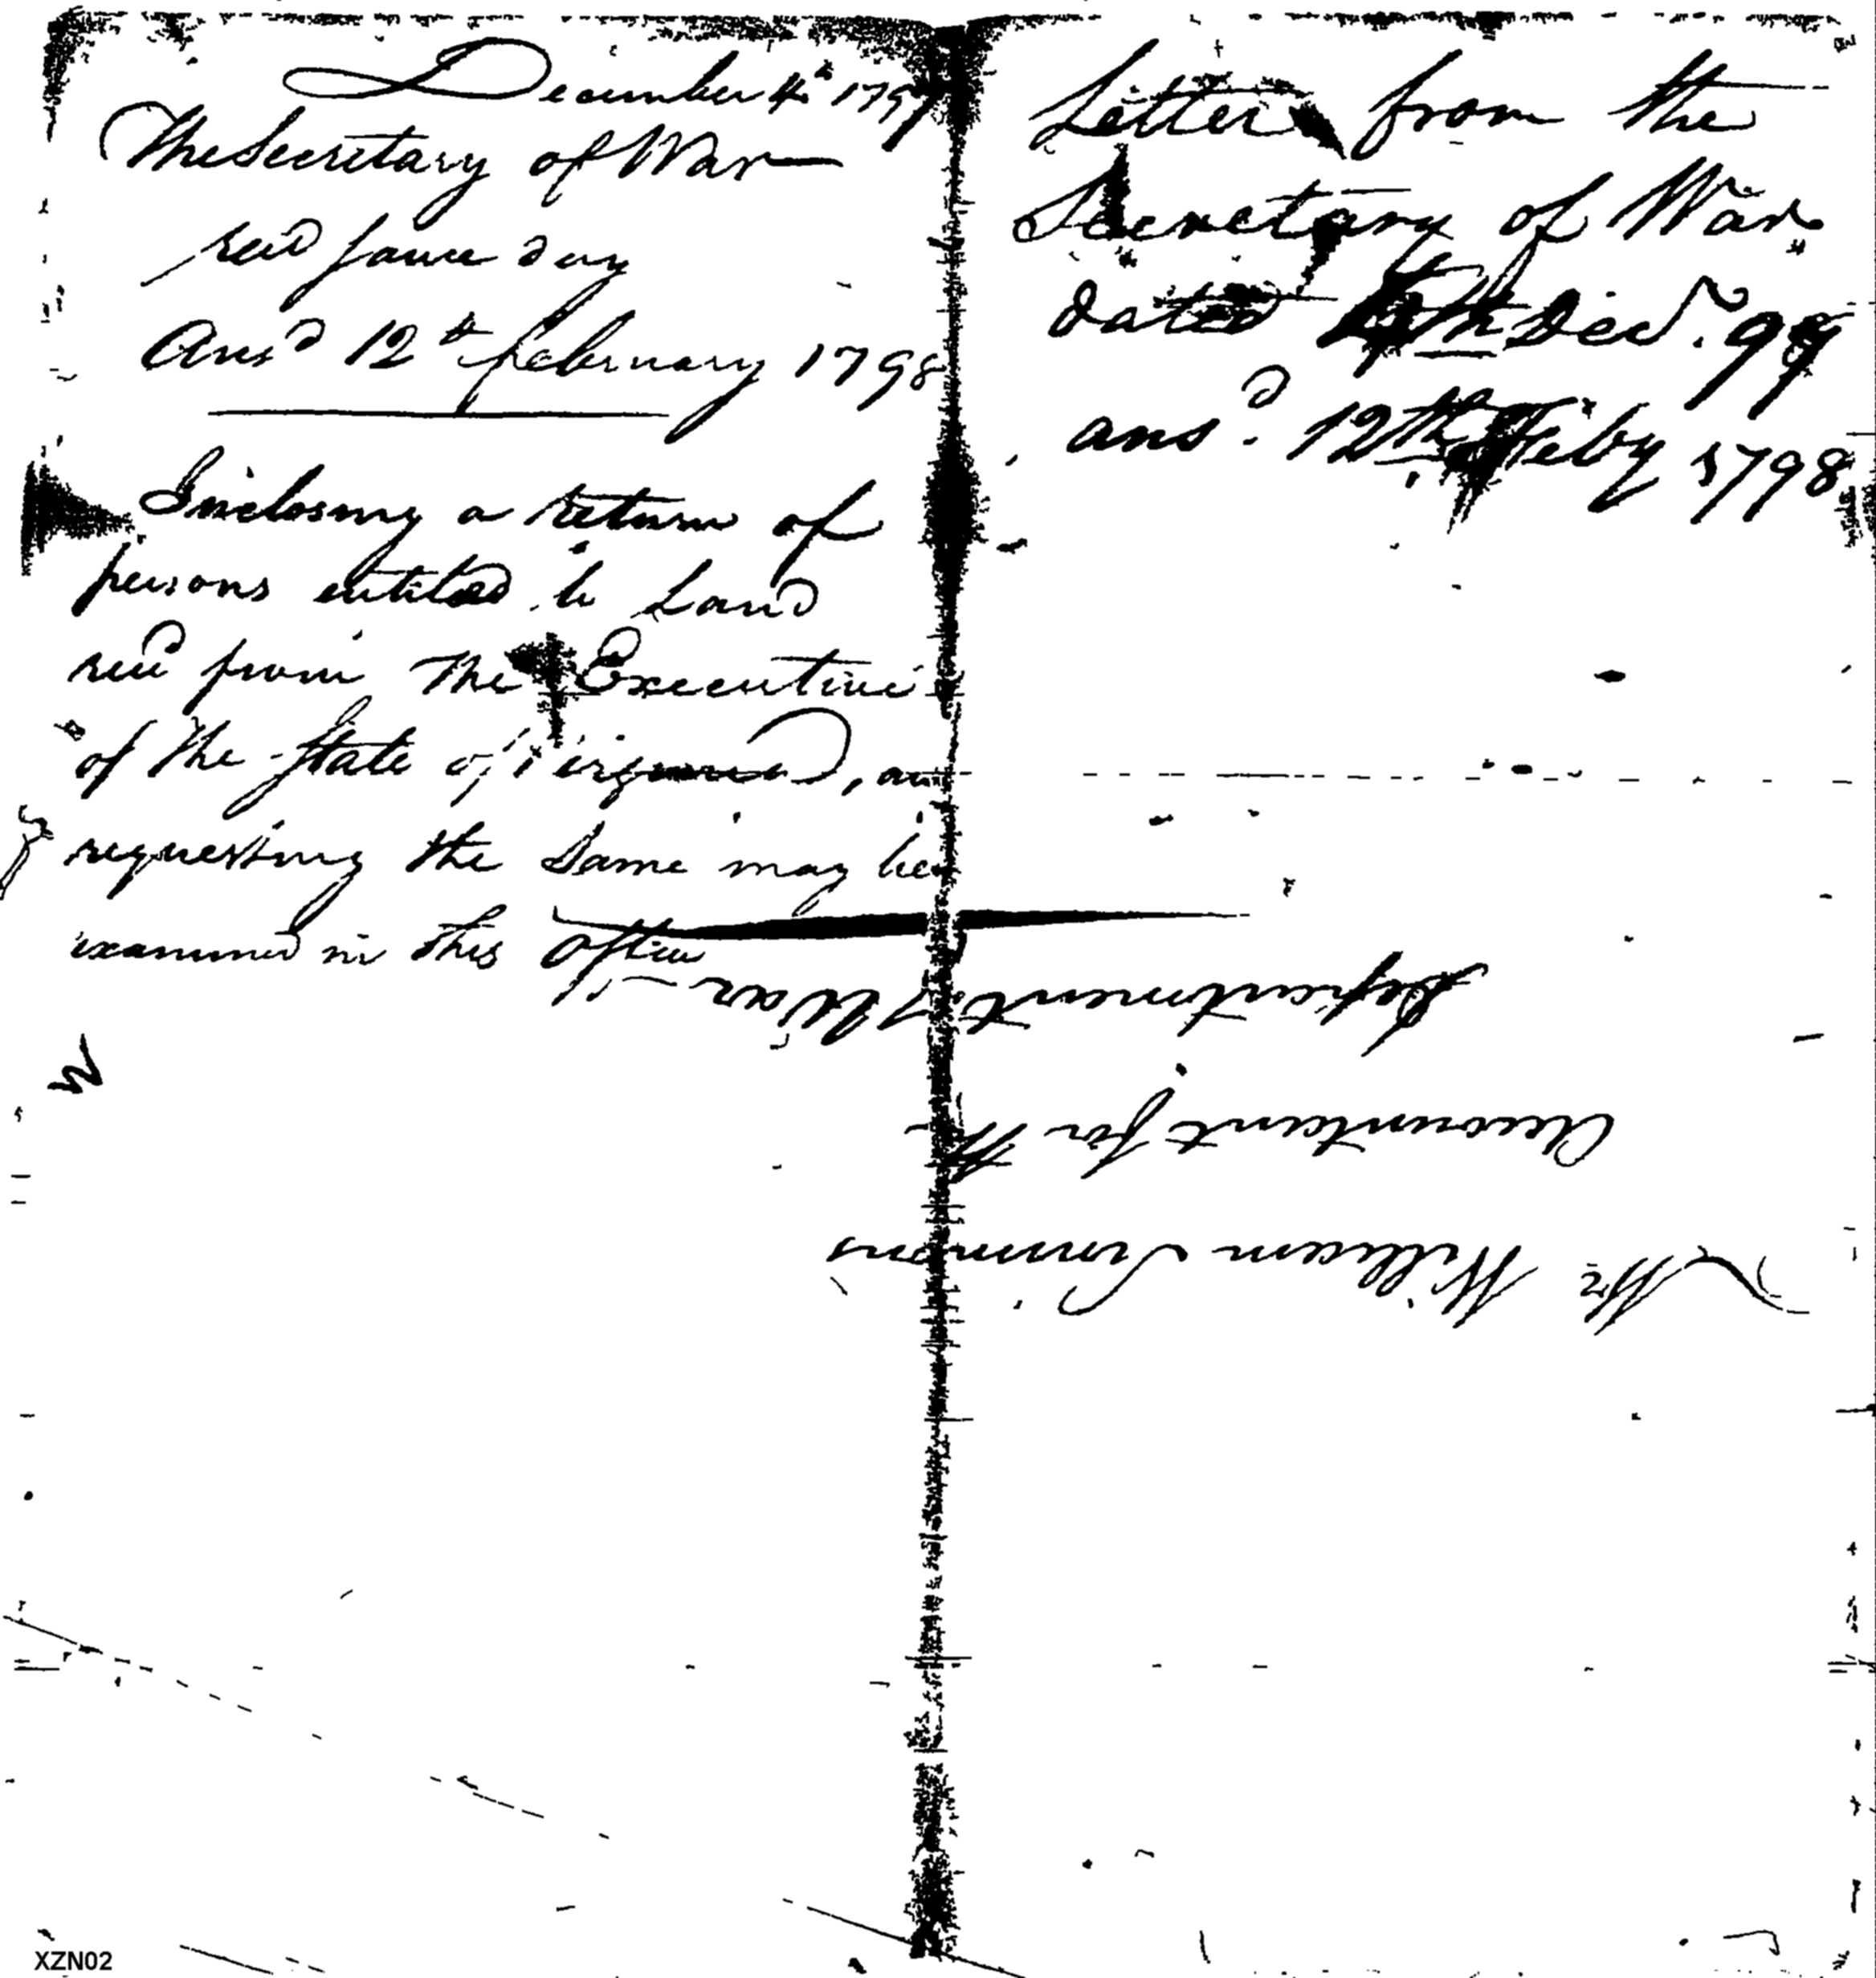 December 4th 1797
The Secretary of War
recd same day
Ansd 12th February 1798
Inclosing a return of
persons entitled to Land
recd from the Executive
of the State of Virginia, and
requesting the same may be
examined in this Office
Letter from the
Secretary of War
dated 4th Decr. 97
ansd. 12th Feby 1798
Mr. William Simmons
Accountant for the
Department of War
XZN02